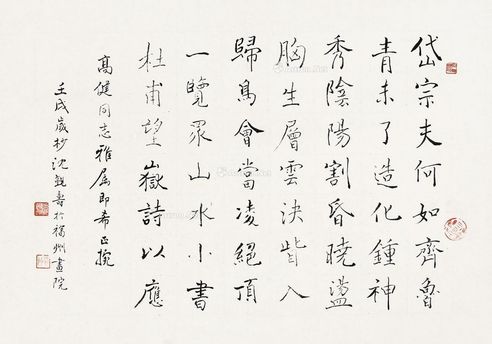 岱宗夫何如齊魯
青未了造化鍾神
秀陰陽割昏曉盪
胸生層雲決眥入
歸鳥會當凌絕頂
一覽眾山水小書
杜甫望嶽詩以應
高健同志雅屬即希正
壬戌歲杪沈覲壽於福州畫院